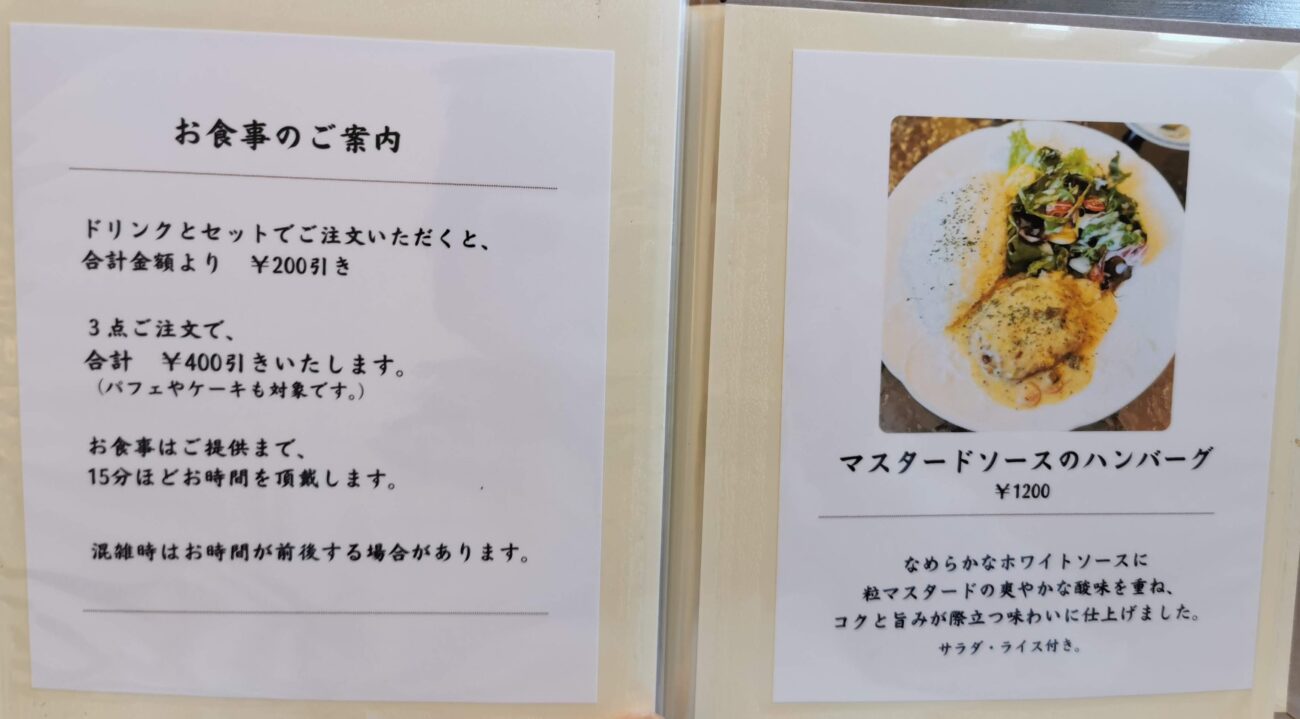 お食事のご案内
ドリンクとセットでご注文いただくと、
合計金額より　￥200引き
３点ご注文で、
合計　￥400引きいたします。
（パフェやケーキも対象です。）
お食事はご提供まで、
15分ほどお時間を頂戴します。
混雑時はお時間が前後する場合があります。
マスタードソースのハンバーグ
￥1200
なめらかなホワイトソースに
粒マスタードの爽やかな酸味を重ね、
コクと旨みが際立つ味わいに仕上げました。
サラダ・ライス付き。